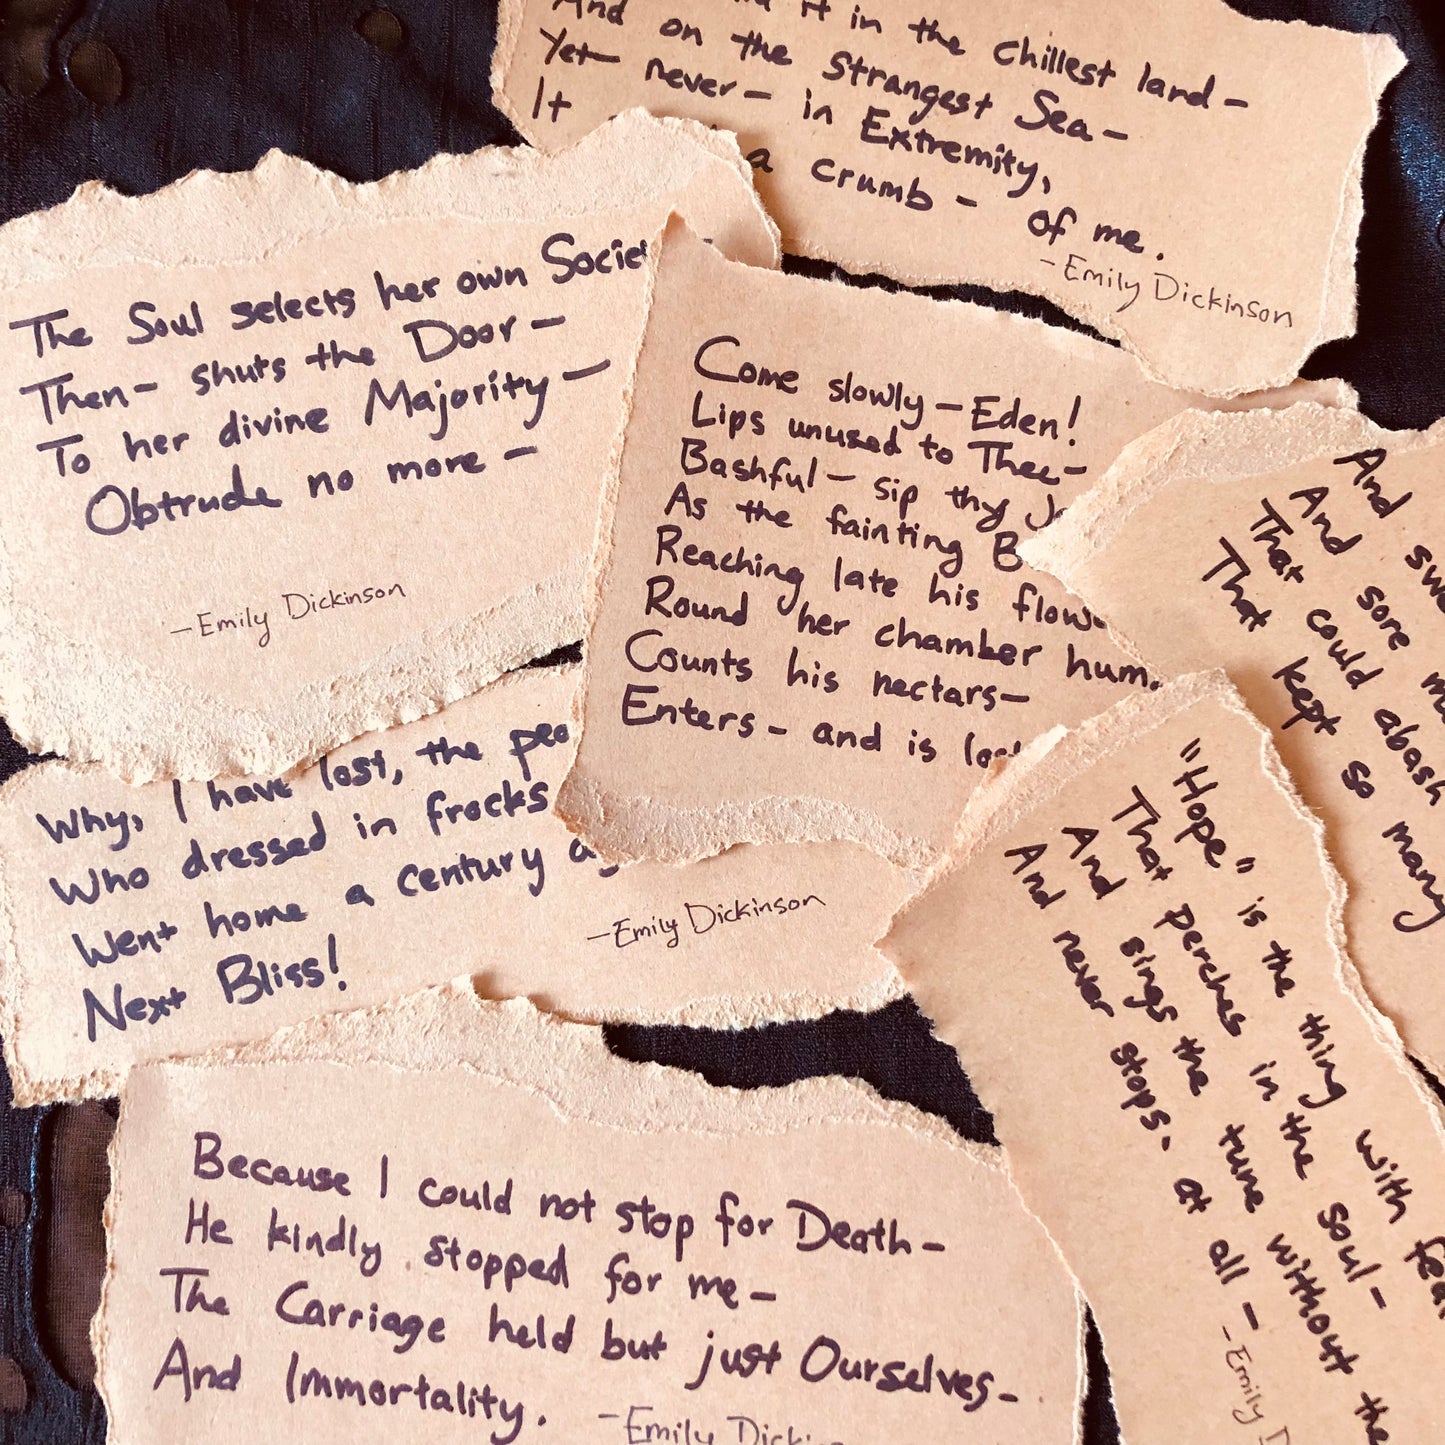 it in the chillest land-
And on the strangest Sea-
Yet never- in Extremity,
It a crumb- of me.
-Emily Dickinson
The Soul selects her own
Then- shuts the Door-
To her divine Majority-
Obtrude no more-
-Emily Dickinson
Come slowly-Eden!
Lips unused to Thee-
Bashful- sip thy
As the fainting
Reaching late his
Round her chamber hum
Counts his nectars-
Enters- and is
Why, I have lost, the
Who dressed in frocks
Went home a century
Next Bliss!
-Emily Dickinson
And
And sore
That could abash
That kept so many
"Hope" is the thing with
That perches in the soul-
And sings the tune without the
And never stops- at all-
-Emily
Because I could not stop for Death-
He kindly stopped for me-
The Carriage held but just Ourselves-
And Immortality.
-Emily